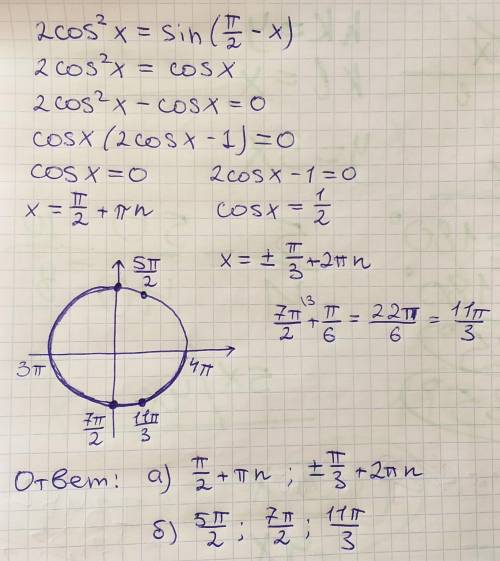 2cos²x = sin(π/2 - x)
2cos²x = cosx
2cos²x - cosx = 0
cosx(2cosx - 1) = 0
cosx = 0   2cosx - 1 = 0
x = π/2 + πn   cosx = 1/2
x = ± π/3 + 2πn
7π/2 \3 + π/6 = 22π/6 = 11π/3
5π/2
3π   4π
7π/2   11π/3
Ответ: а) π/2 + πn ; ±π/3 + 2πn
б) 5π/2 ; 7π/2 ; 11π/3